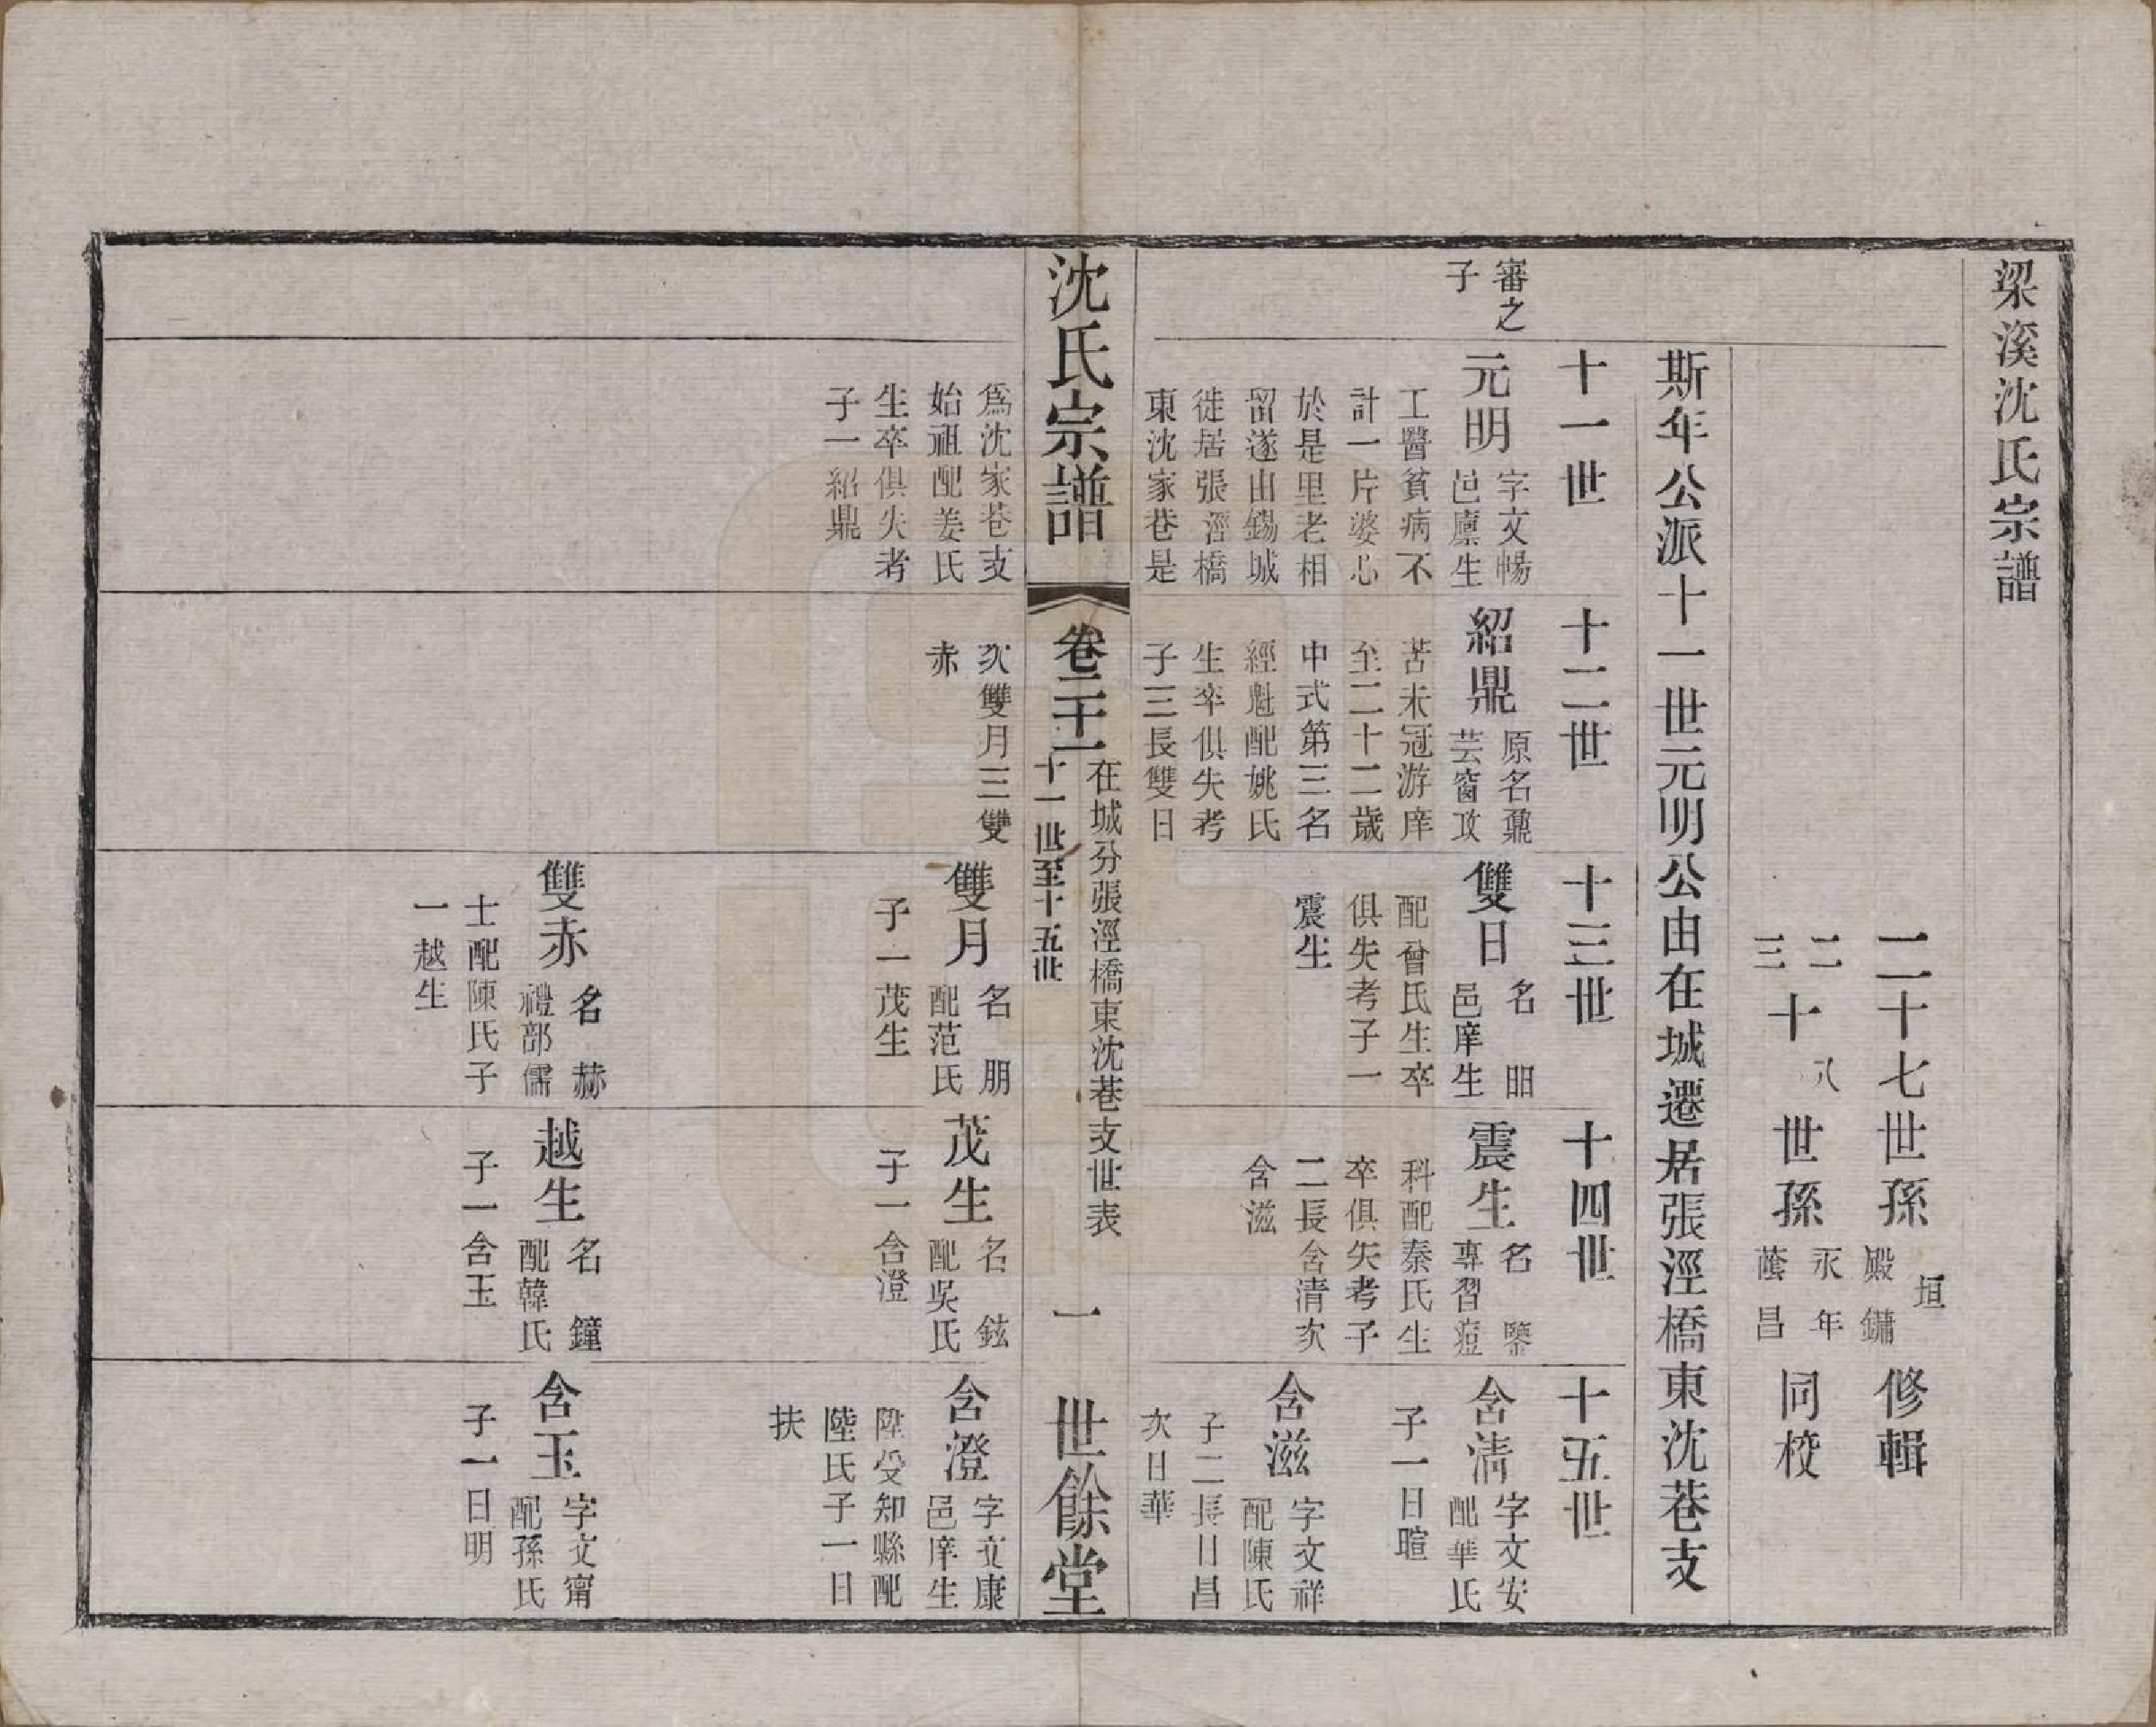 梁溪沈氏宗譜
二十七世孫 垣 殿鏞 修輯
二十八世孫 永年 同校
三十世孫 蔭昌
斯年公派十一世元明公由在城遷居張涇橋東沈巷支
十一世
審之子
元明 字文暢 邑廩生
工醫貧病不
計一片婆心
於是里老相
留遂由錫城
徙居張涇橋
東沈家巷是
為沈家巷支
始祖配姜氏
生卒俱失考
子一紹鼎
十二世
紹鼎 原名鼐 芸窗攻
苦未冠游庠
至二十二歲
中式第三名
經魁配姚氏
生卒俱失考
子三長雙日
次雙月三雙
赤
十三世
雙日 名昍 邑庠生
配曾氏生卒
俱失考子一
震生
雙月 名朋 配范氏
子一茂生
雙赤 名赫 禮部儒
士配陳氏子
一越生
十四世
震生 名鑒 專習痘
科配秦氏生
卒俱失考子
二長含清次
含滋
茂生 名鉉 配吳氏
子一含澄
越生 名鐘 配韓氏
子一含玉
十五世
含清 字文安 配華氏
子一日暄
含滋 字文祥 配陳氏
子二長日昌
次日華
含澄 字文康 邑庠生
陞受知縣配
陸氏子一日
扶
含玉 字文甯 配孫氏
子一日明
沈氏宗譜
卷二十一 在城分張涇橋東沈巷支世表 十一世至十五世
一
世餘堂